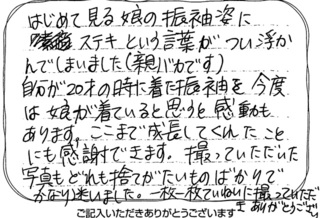 はじめて見る娘の振袖姿に
ステキという言葉がつい浮か
んでしまいました(親バカです)
自分が20才の時に着た振袖を今度
は娘が着ていると思うと感動も
あります。ここまで成長してくれたこと
にも感謝できます。撮っていただいた
写真もどれも捨てがたいものばかりで
かなり迷いました。一枚一枚ていねいに撮っていただ
き ありがとうござい
ご記入いただきありがとうございます